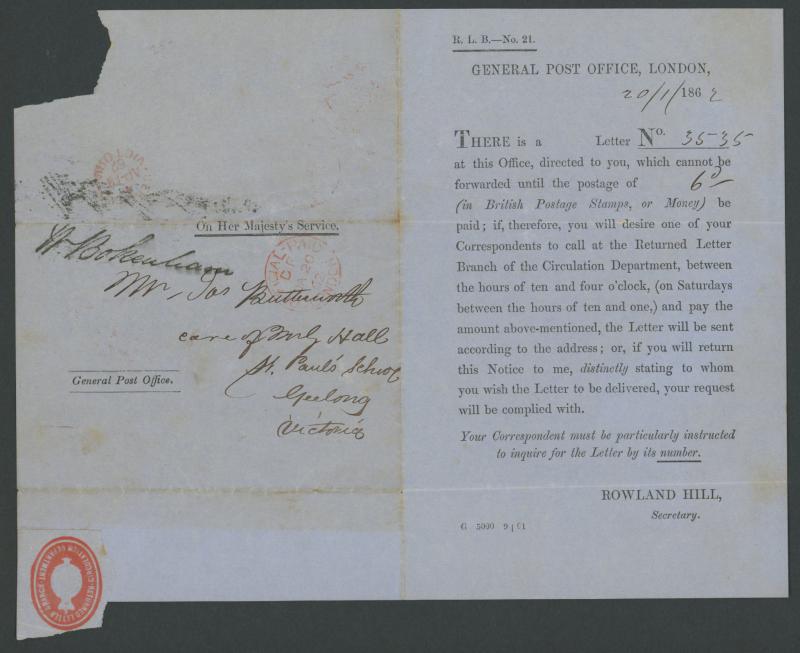 On Her Majesty's Service.
Bokenham
Mr. Jas Butterworth
care of Hall
St. Paul's School
Geelong
Victoria
General Post Office.
RETURNED LETTER BRANCH
CIRCULATION DEPARTMENT
R. L. B.—No. 21.
GENERAL POST OFFICE, LONDON,
20/1/1862
THERE is a Letter No. 3535
at this Office, directed to you, which cannot be
forwarded until the postage of 6d
(in British Postage Stamps, or Money) be
paid; if, therefore, you will desire one of your
Correspondents to call at the Returned Letter
Branch of the Circulation Department, between
the hours of ten and four o'clock, (on Saturdays
between the hours of ten and one,) and pay the
amount above-mentioned, the Letter will be sent
according to the address; or, if you will return
this Notice to me, distinctly stating to whom
you wish the Letter to be delivered, your request
will be complied with.
Your Correspondent must be particularly instructed
to inquire for the Letter by its number.
ROWLAND HILL,
Secretary.
G 5000 9 | 61